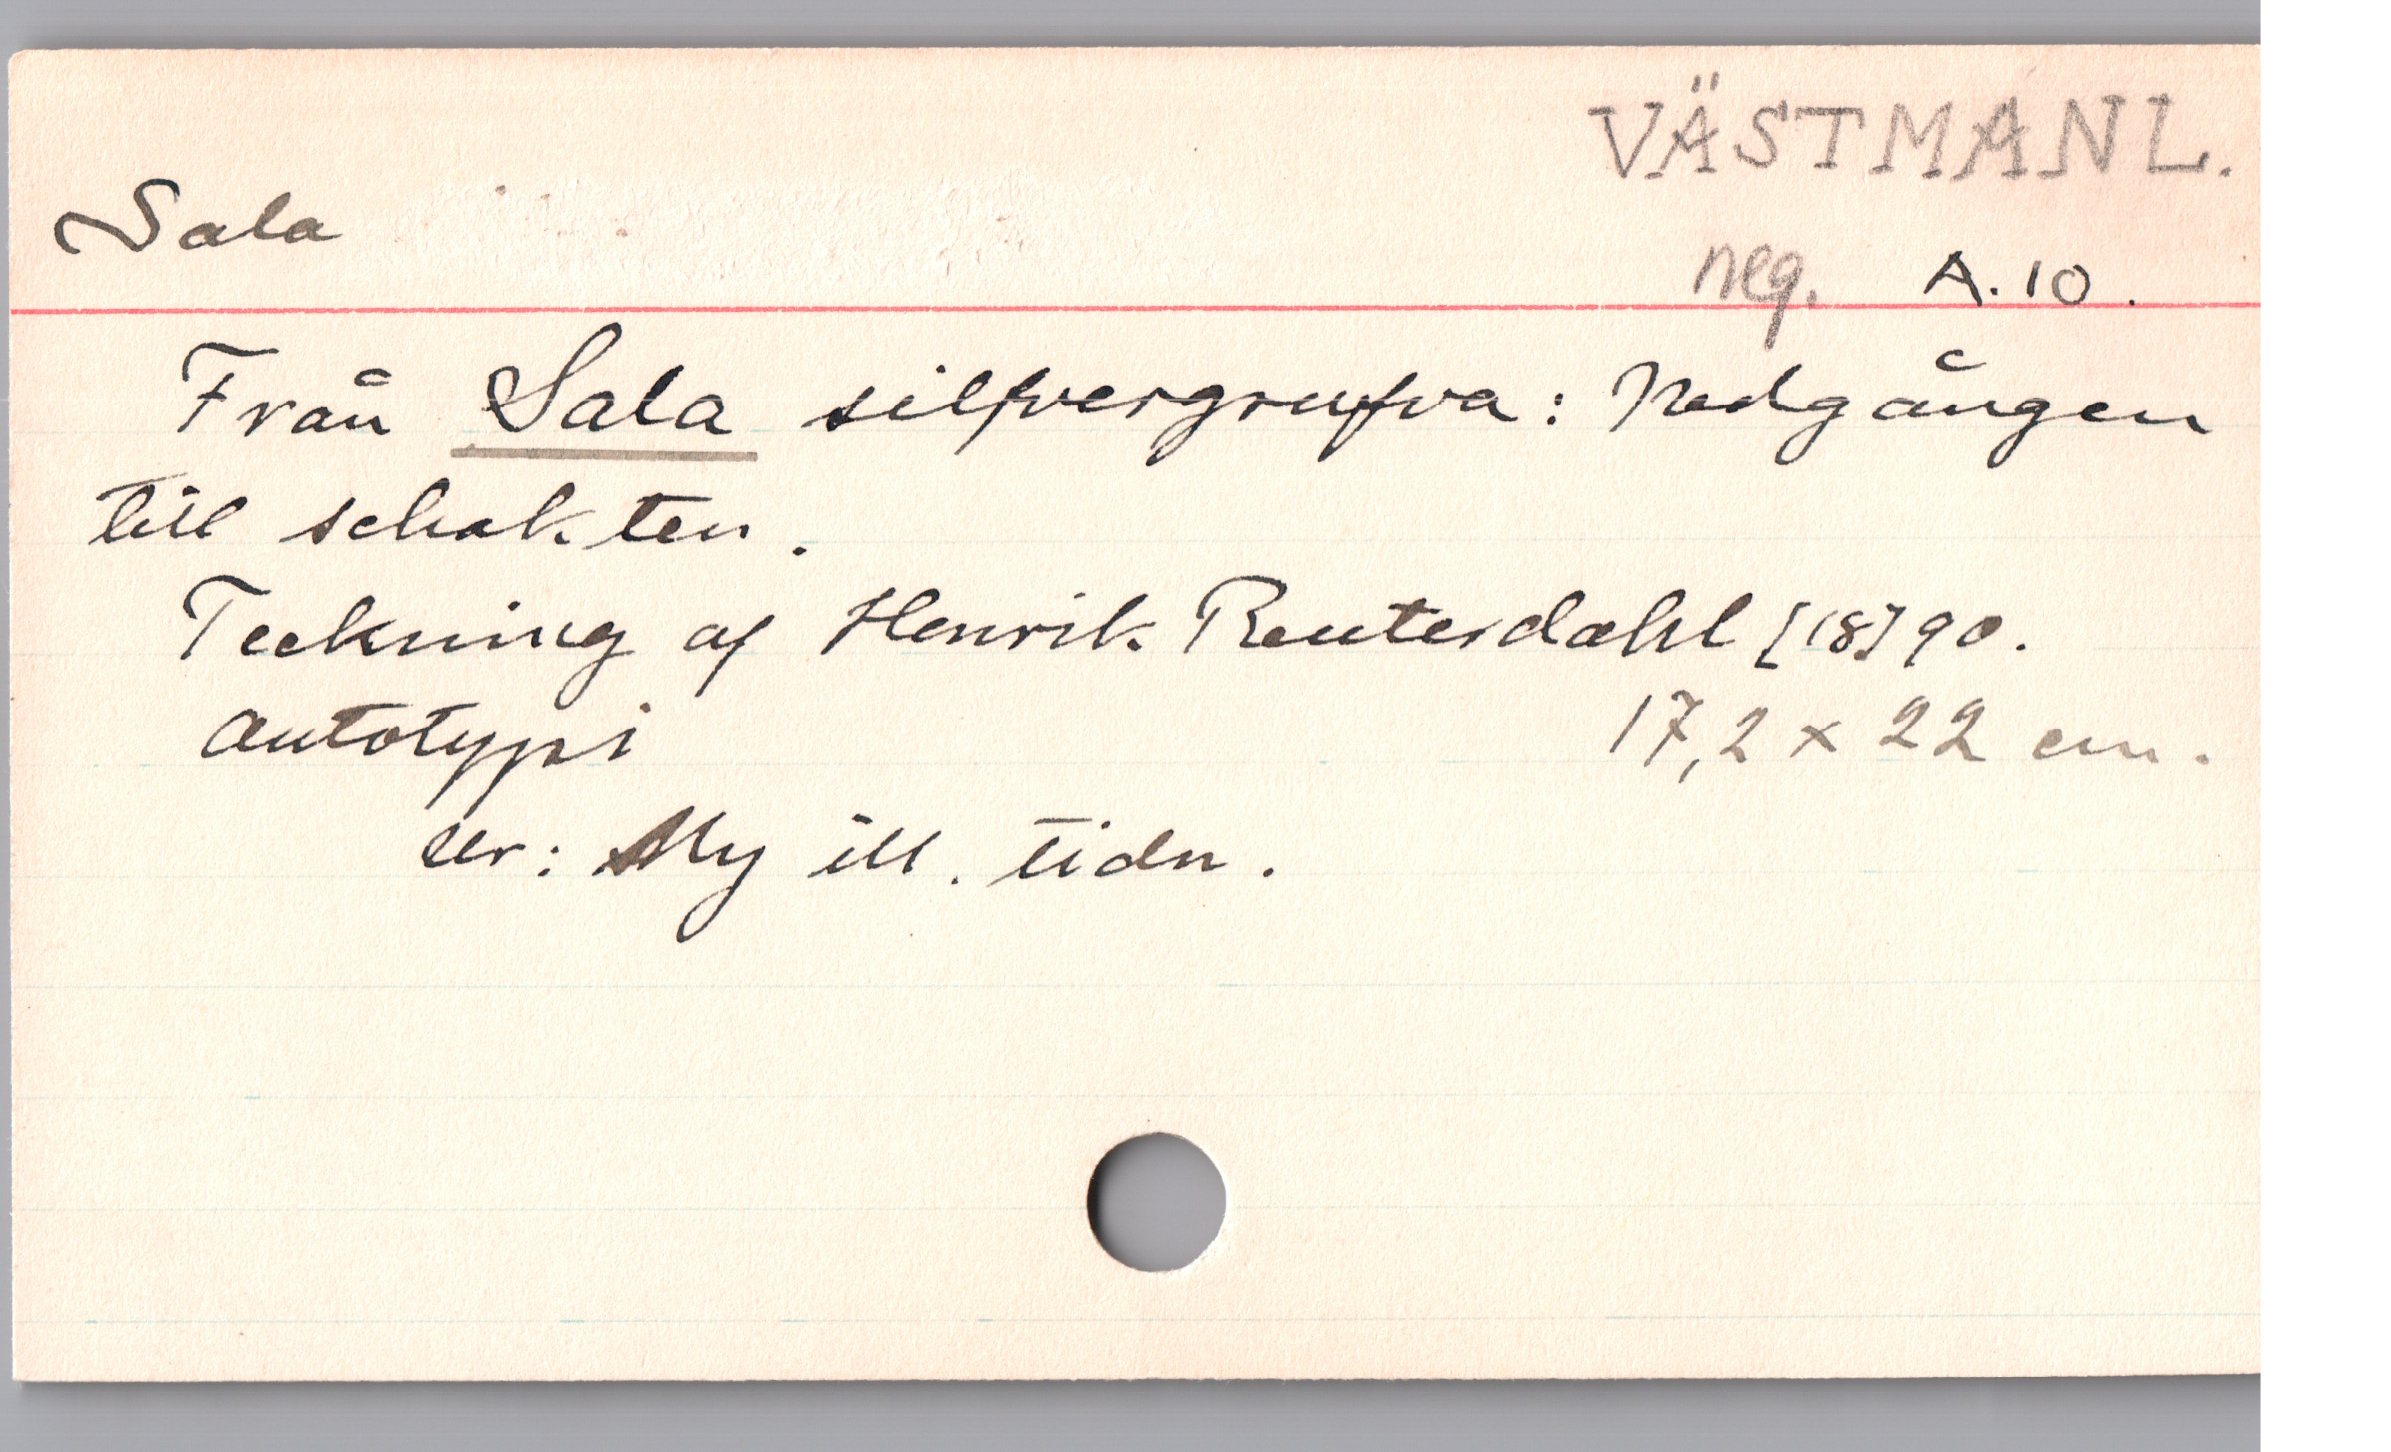 VÄSTMANL.
Sala
neg. A.10.
Från Sala silfvergrufva: Nedgången
till schakten.
Teckning af Henrik Reuterdahl [18]90.
Autotypi 17,2 x 22 cm.
Ur: Ny ill. tidn.